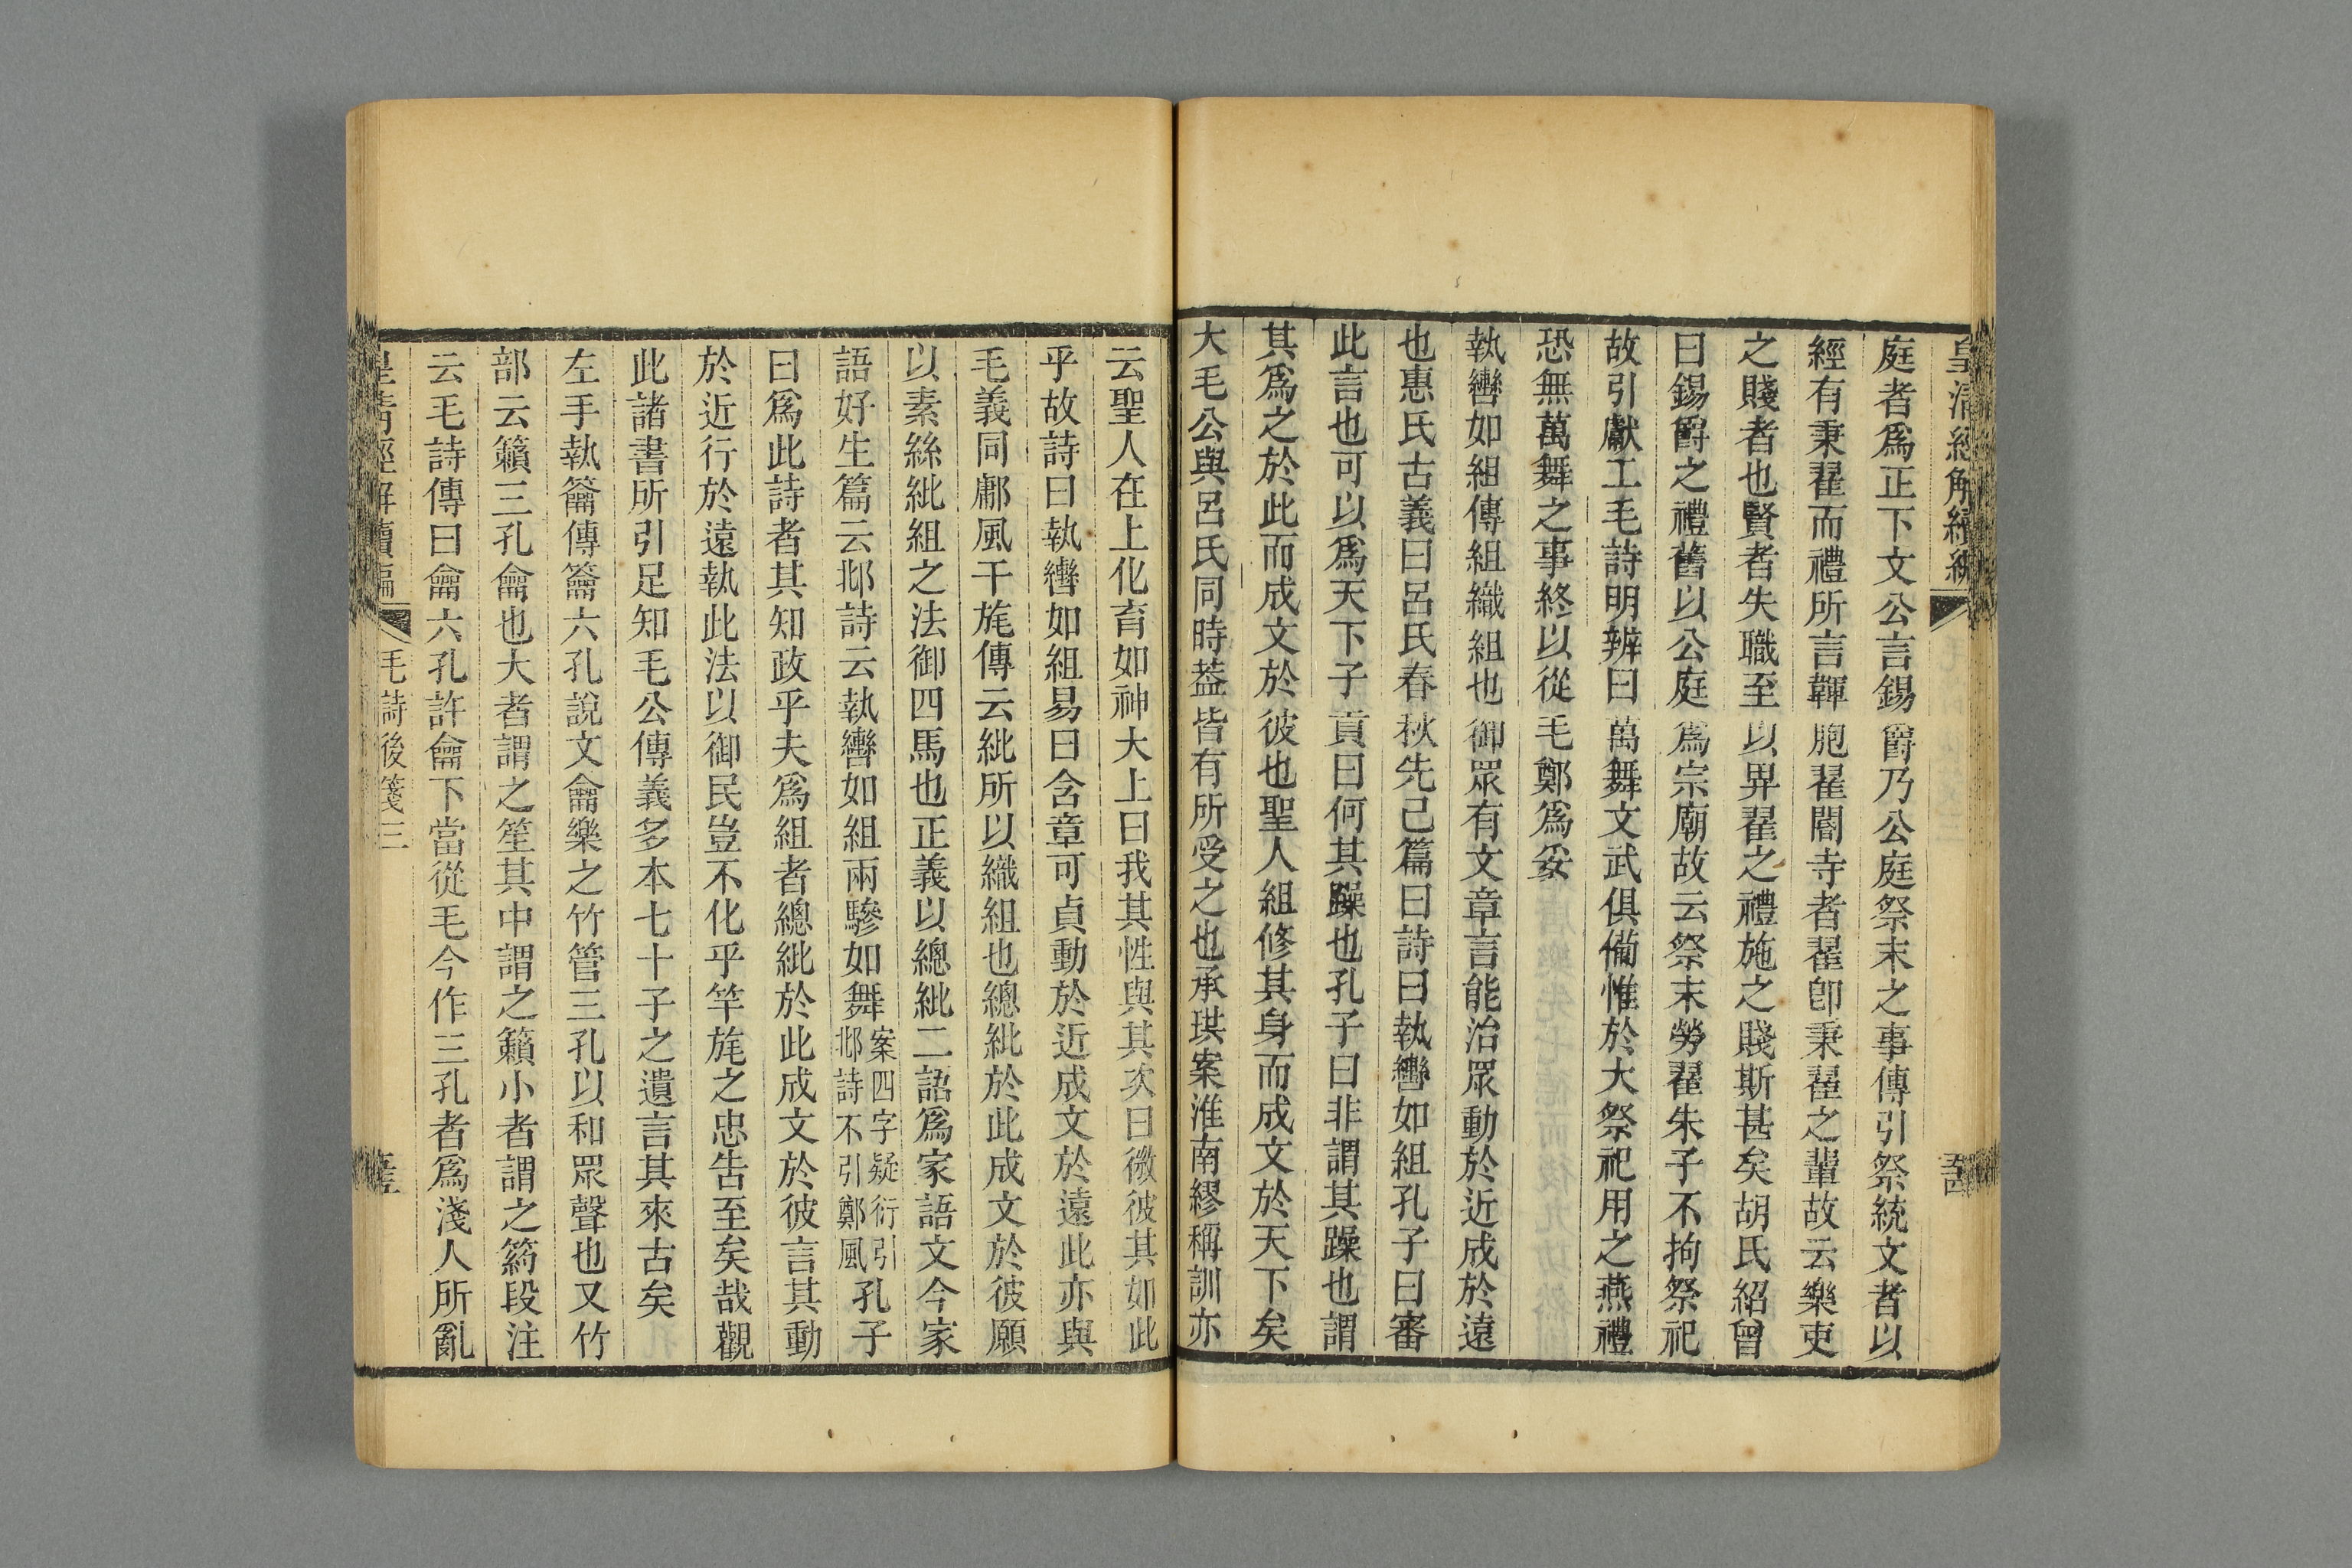 皇清經解續編
庭者爲正下文公言錫爵乃公庭祭末之事傳引祭統文者以
經有秉翟而禮所言煇胞翟閽寺者翟卽秉翟之輩故云樂吏
之賤者也賢者失職至以畀翟之禮施之賤斯甚矣胡氏紹曾
曰錫爵之禮舊以公庭爲宗廟故云祭末勞翟朱子不拘祭祀
故引獻工毛詩明辨曰萬舞文武俱備惟於大祭祀用之燕禮
恐無萬舞之事終以從毛鄭爲妥
執轡如組傳組織組也御眾有文章言能治眾動於近成於遠
也惠氏古義曰呂氏春秋先己篇曰詩曰執轡如組孔子曰審
此言也可以爲天下子貢曰何其躁也孔子曰非謂其躁也謂
其爲之於此而成文於彼也聖人組修其身而成文於天下矣
大毛公與呂氏同時葢皆有所受之也承珙案淮南繆稱訓亦
云聖人在上化育如神大上曰我其性與其次曰微彼其如此
乎故詩曰執轡如組易曰含章可貞動於近成文於遠此亦與
毛義同鄘風干旄傳云紕所以織組也總紕於此成文於彼願
以素絲紕組之法御四馬也正義以總紕二語爲家語文今家
語好生篇云邶詩云執轡如組兩驂如舞案四字疑衍引邶詩不引鄭風孔子
曰爲此詩者其知政乎夫爲組者總紕於此成文於彼言其動
於近行於遠執此法以御民豈不化乎竿旄之忠告至矣哉觀
此諸書所引足知毛公傳義多本七十子之遺言其來古矣
左手執籥傳籥六孔說文龠樂之竹管三孔以和眾聲也又竹
部云籟三孔龠也大者謂之笙其中謂之籟小者謂之箹段注
云毛詩傳曰龠六孔許龠下當從毛今作三孔者爲淺人所亂
皇清經解續編
毛詩後箋三